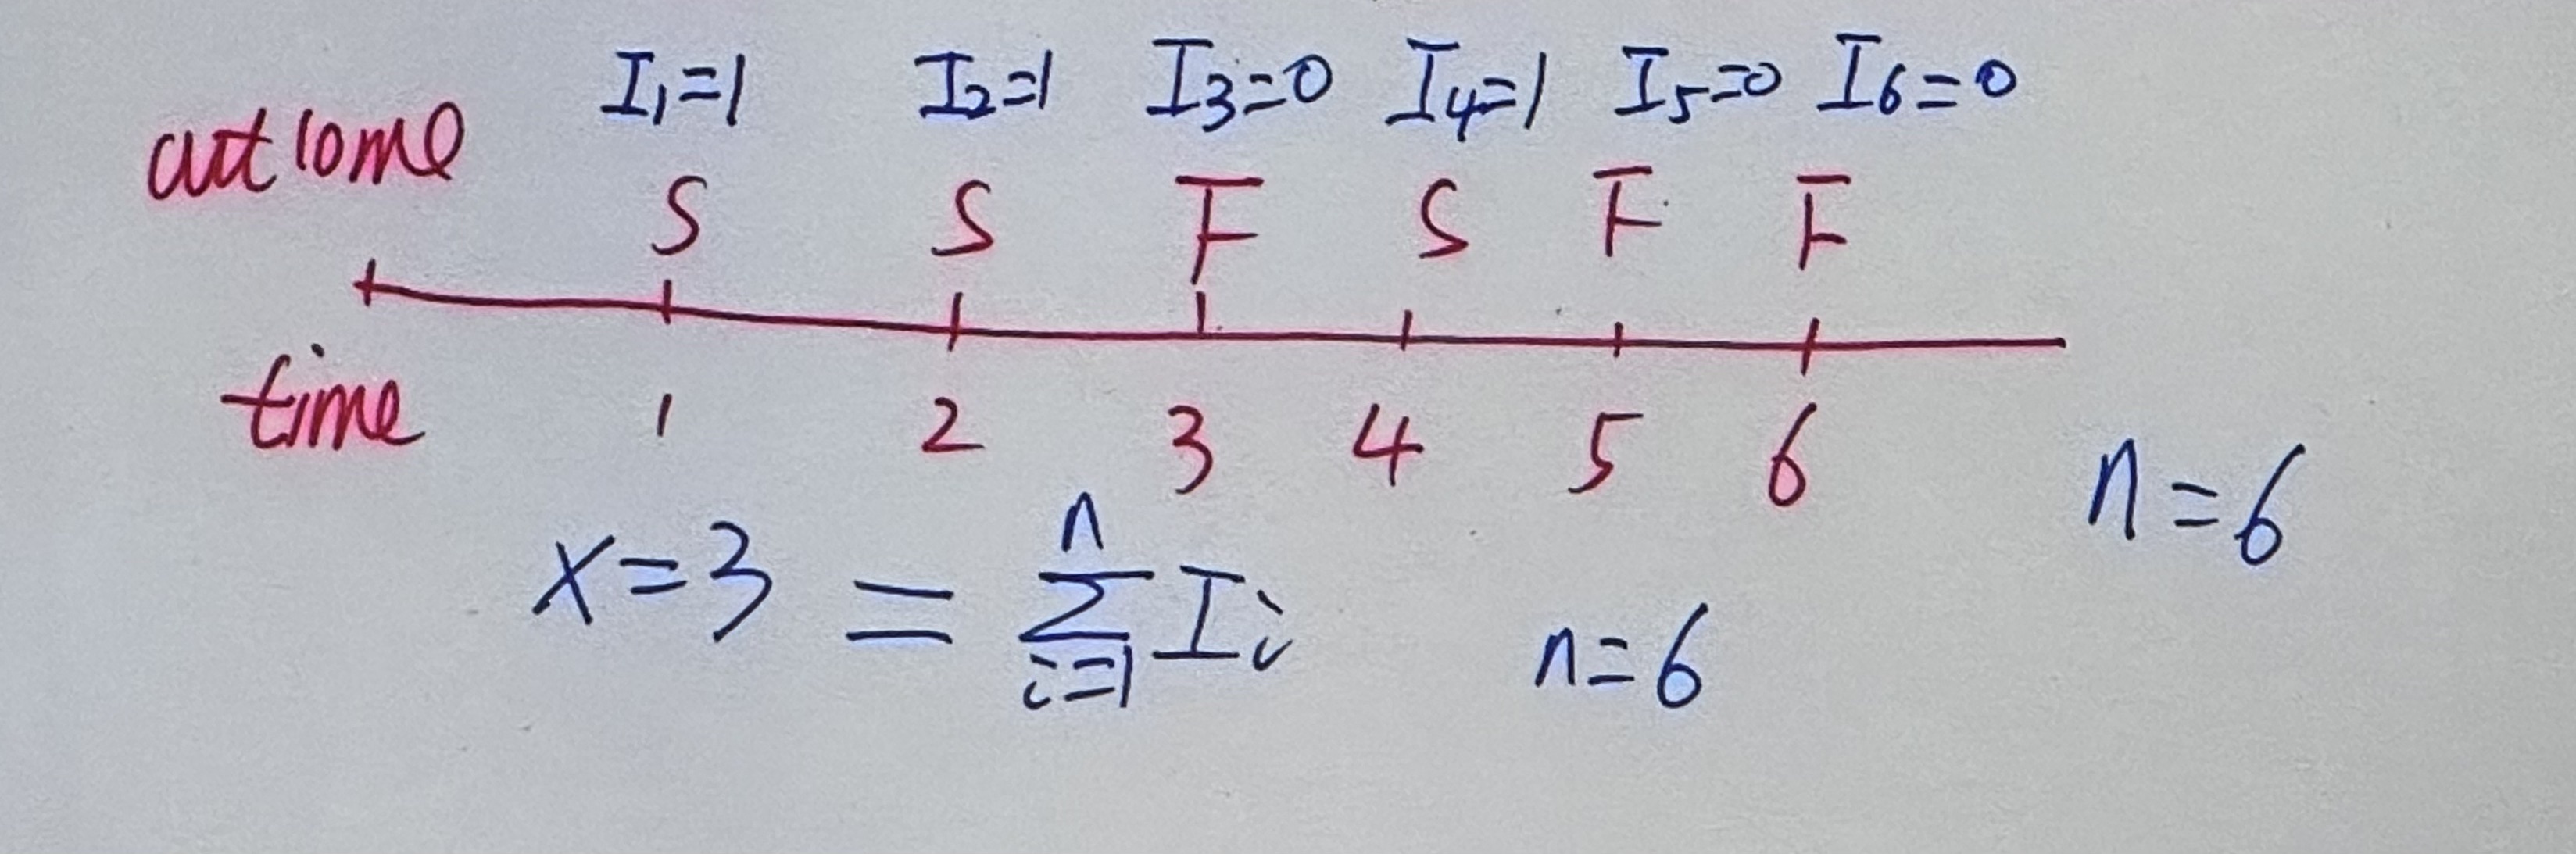 I₁=1 I₂=1 I₃=0 I₄=1 I₅=0 I₆=0
outcome
S S F S F F
time 1 2 3 4 5 6
n=6
x=3 = ∑ᵢ₌₁ⁿ Iᵢ n=6